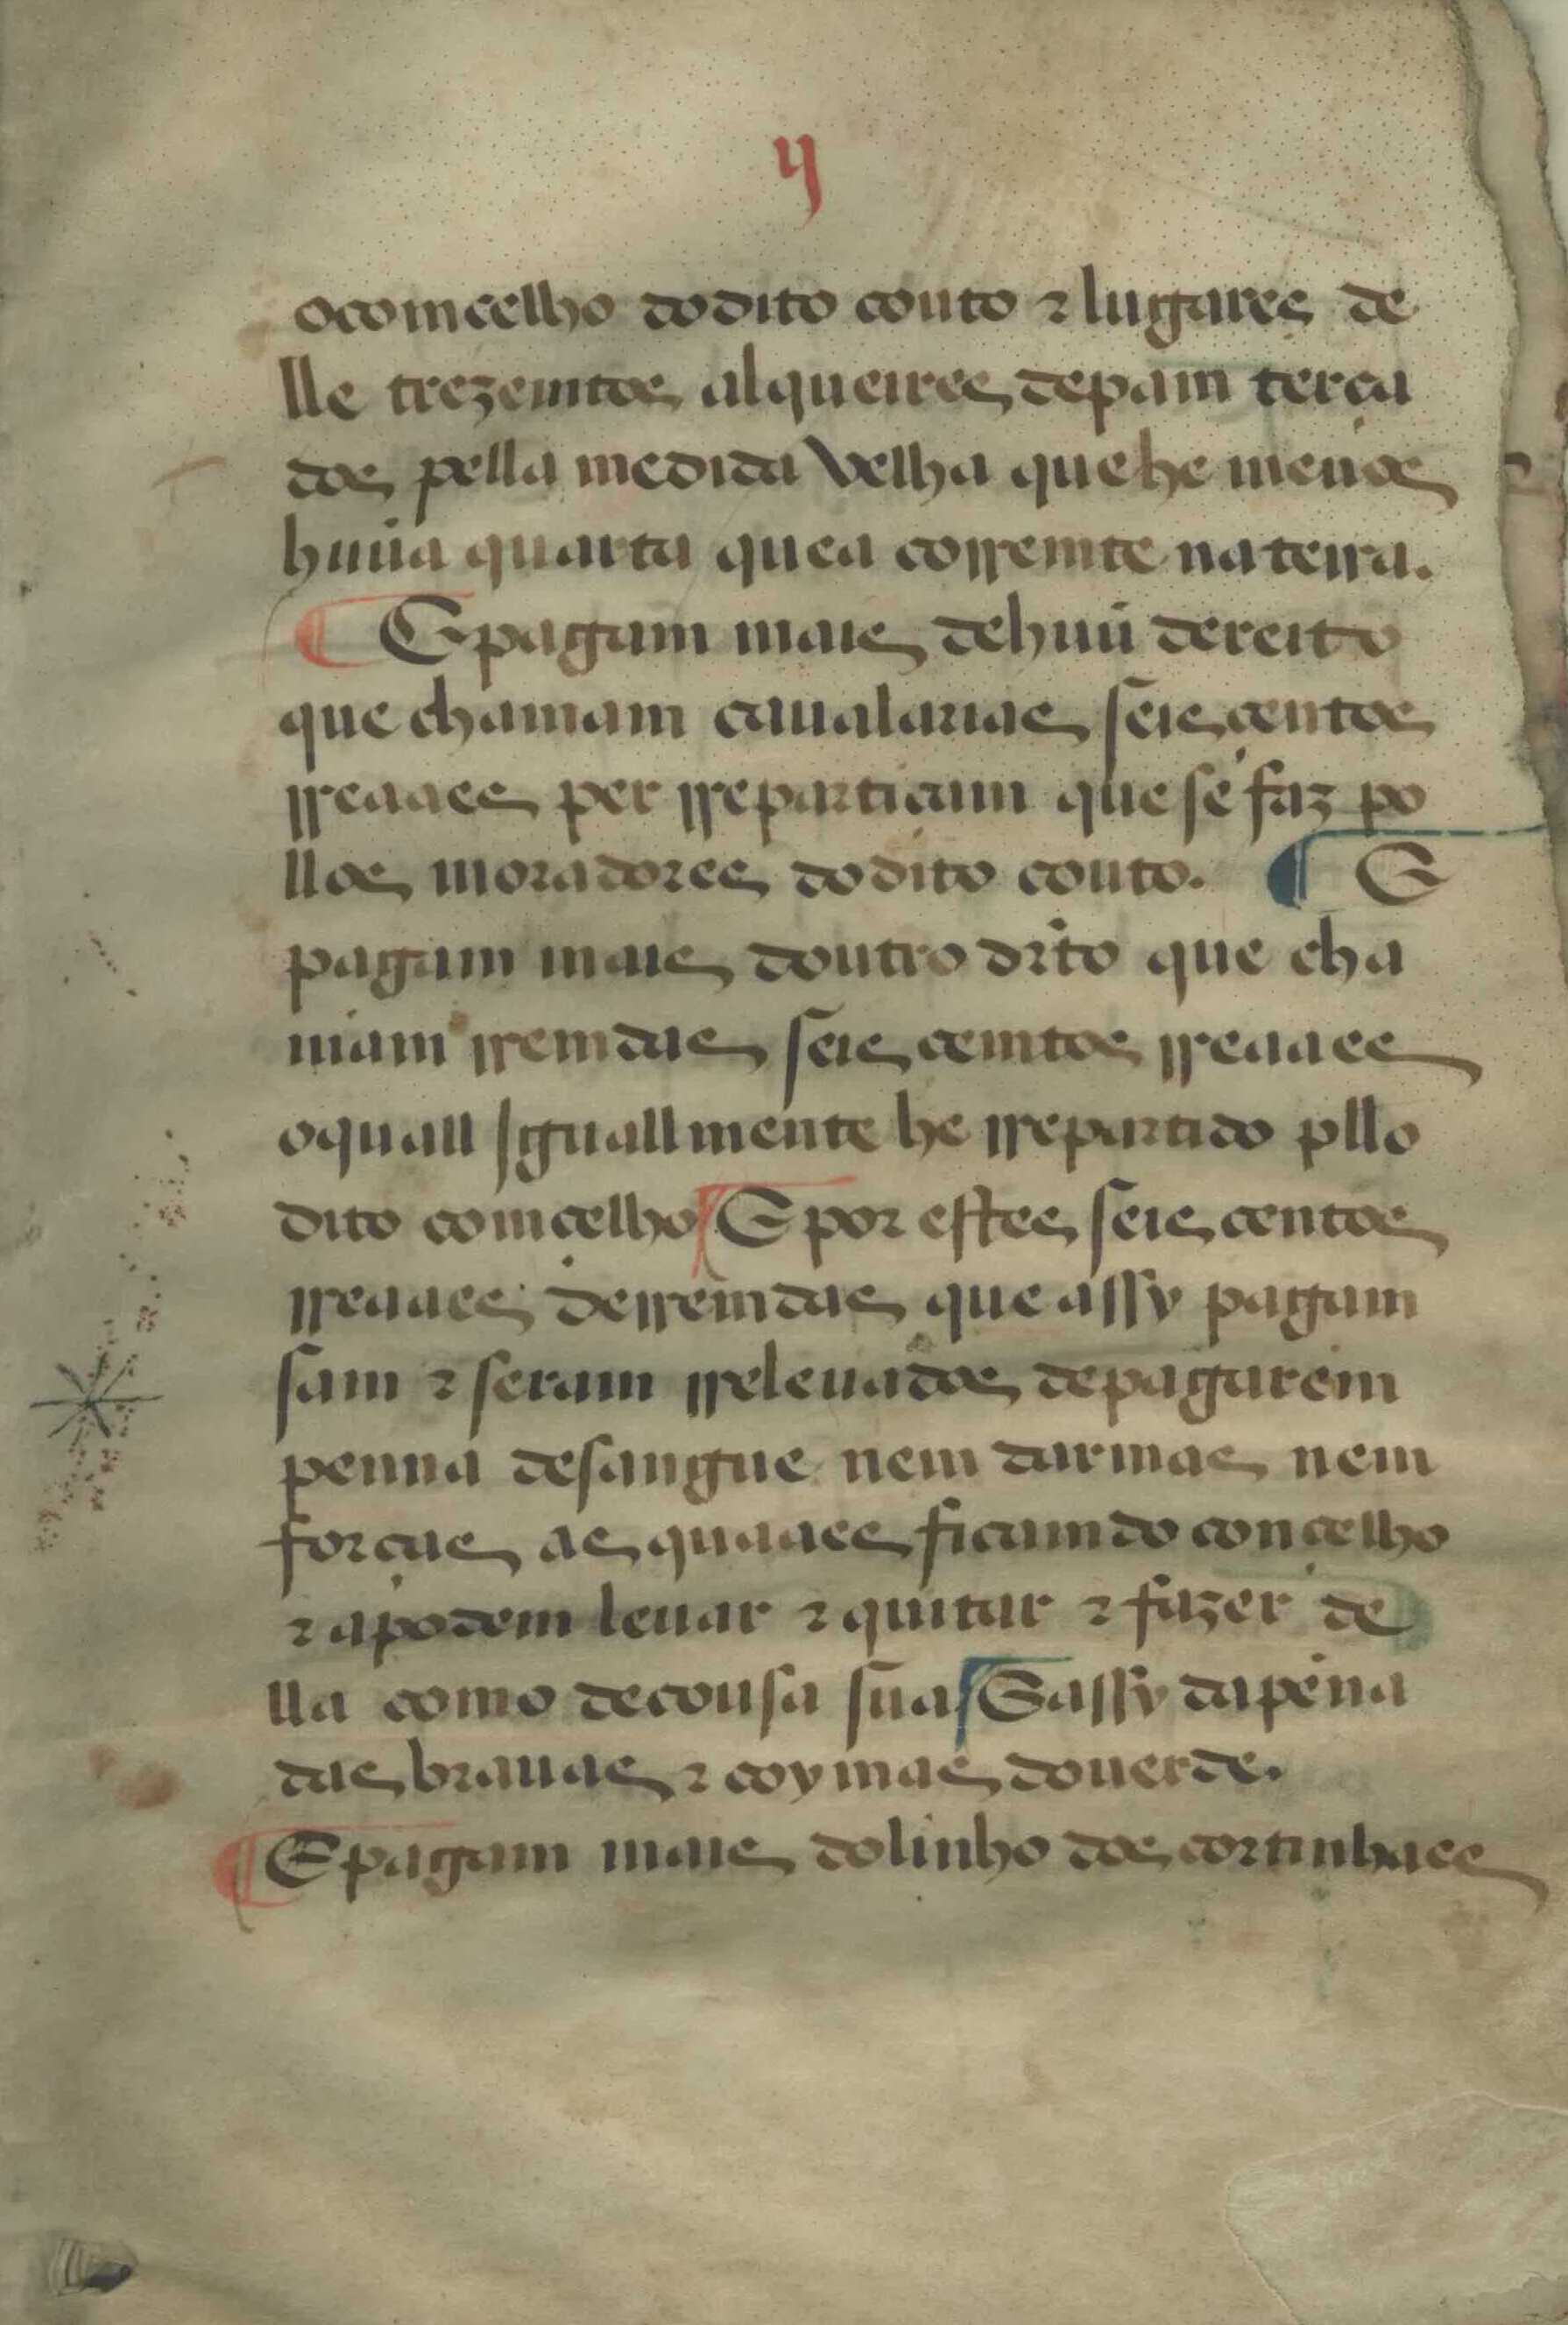 ij
o comcelho do dito couto ⁊ lugares de
lle trezemtos alqueires de pam terça
dos pella medida velha que he menos
huũa quarta que a corremte na terra.
¶ E pagam mais de huũ dereito
que chamam caualarias seis centos
rreaaes per rreparticam que se faz po
llos moradores do dito couto. ¶ E
pagam mais doutro drto que cha
mam rremdas seis cemtos rreaaes
o quall jguallmente he rrepartido pllo
dito comcelho ¶ E por estes seis centos
rreaaes de rremdas que assy pagam
sam ⁊ seram rreleuados de pagarem
penna de sangue nem darmas nem
forças as quaaes ficam do concelho
⁊ a podem leuar ⁊ quitar ⁊ fazer de
lla como de cousa sua ¶ E assy da pena
das brauas ⁊ coymas do uerde.
¶ E pagam mais do linho dos cortinhaes